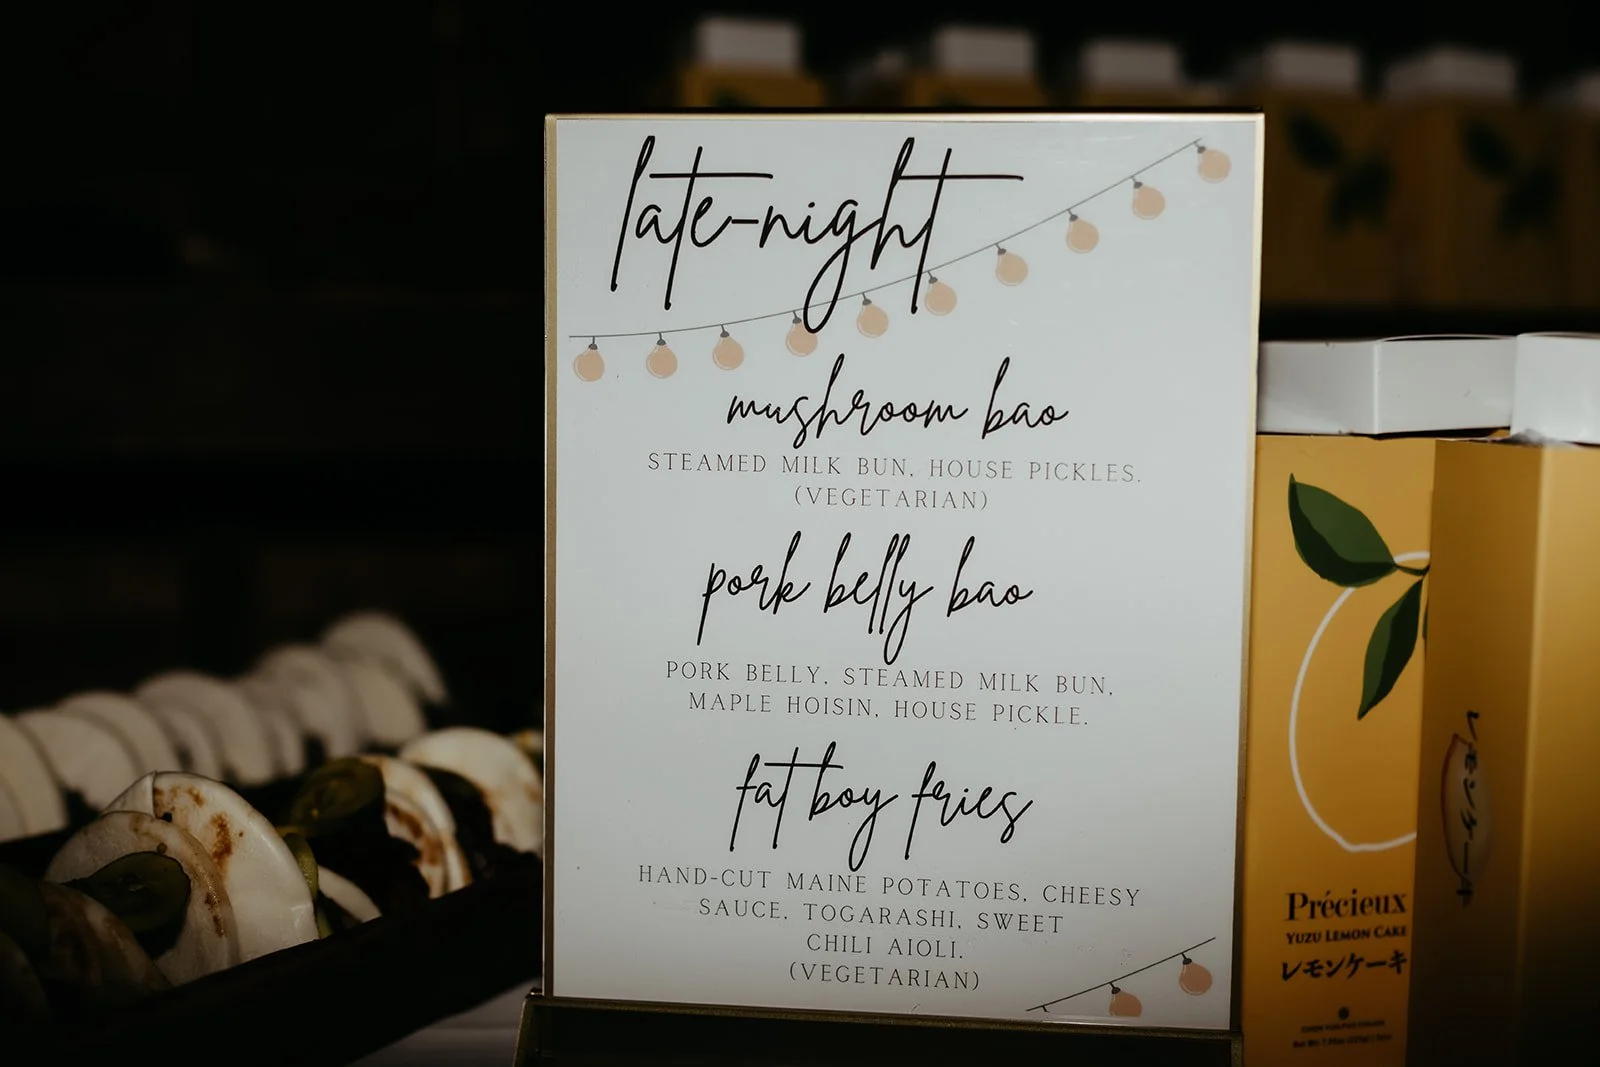 late-night
mushroom bao
STEAMED MILK BUN, HOUSE PICKLES.
(VEGETARIAN)
pork belly bao
PORK BELLY, STEAMED MILK BUN,
MAPLE HOISIN, HOUSE PICKLE.
fat boy fries
HAND-CUT MAINE POTATOES, CHEESY
SAUCE, TOGARASHI, SWEET
CHILI AIOLI.
(VEGETARIAN)
Précieux
YUZU LEMON CAKE
レモンケーキ
レモンケーキ